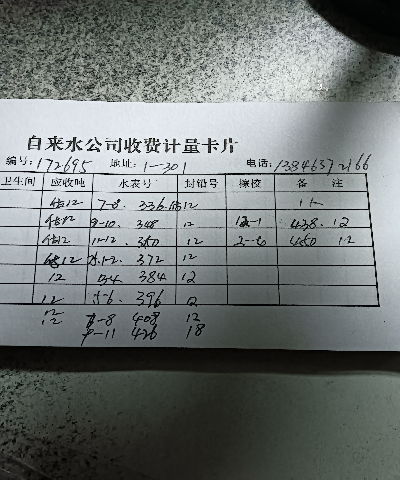 自来水公司收费计量卡片
编号：172695 地址：1-301 电话：13846372166
卫生间 应收吨 水表号 封铅号 接校 备注
12 7-8. 336 12
12 9-10. 348 12 12-1 438. 12
12 11-12. 360 12 2-6 450 12
12 1-2. 372 12
12 3-4 384 12
12 5-6. 396 12
12 7-8 408 12
9-11 426 18